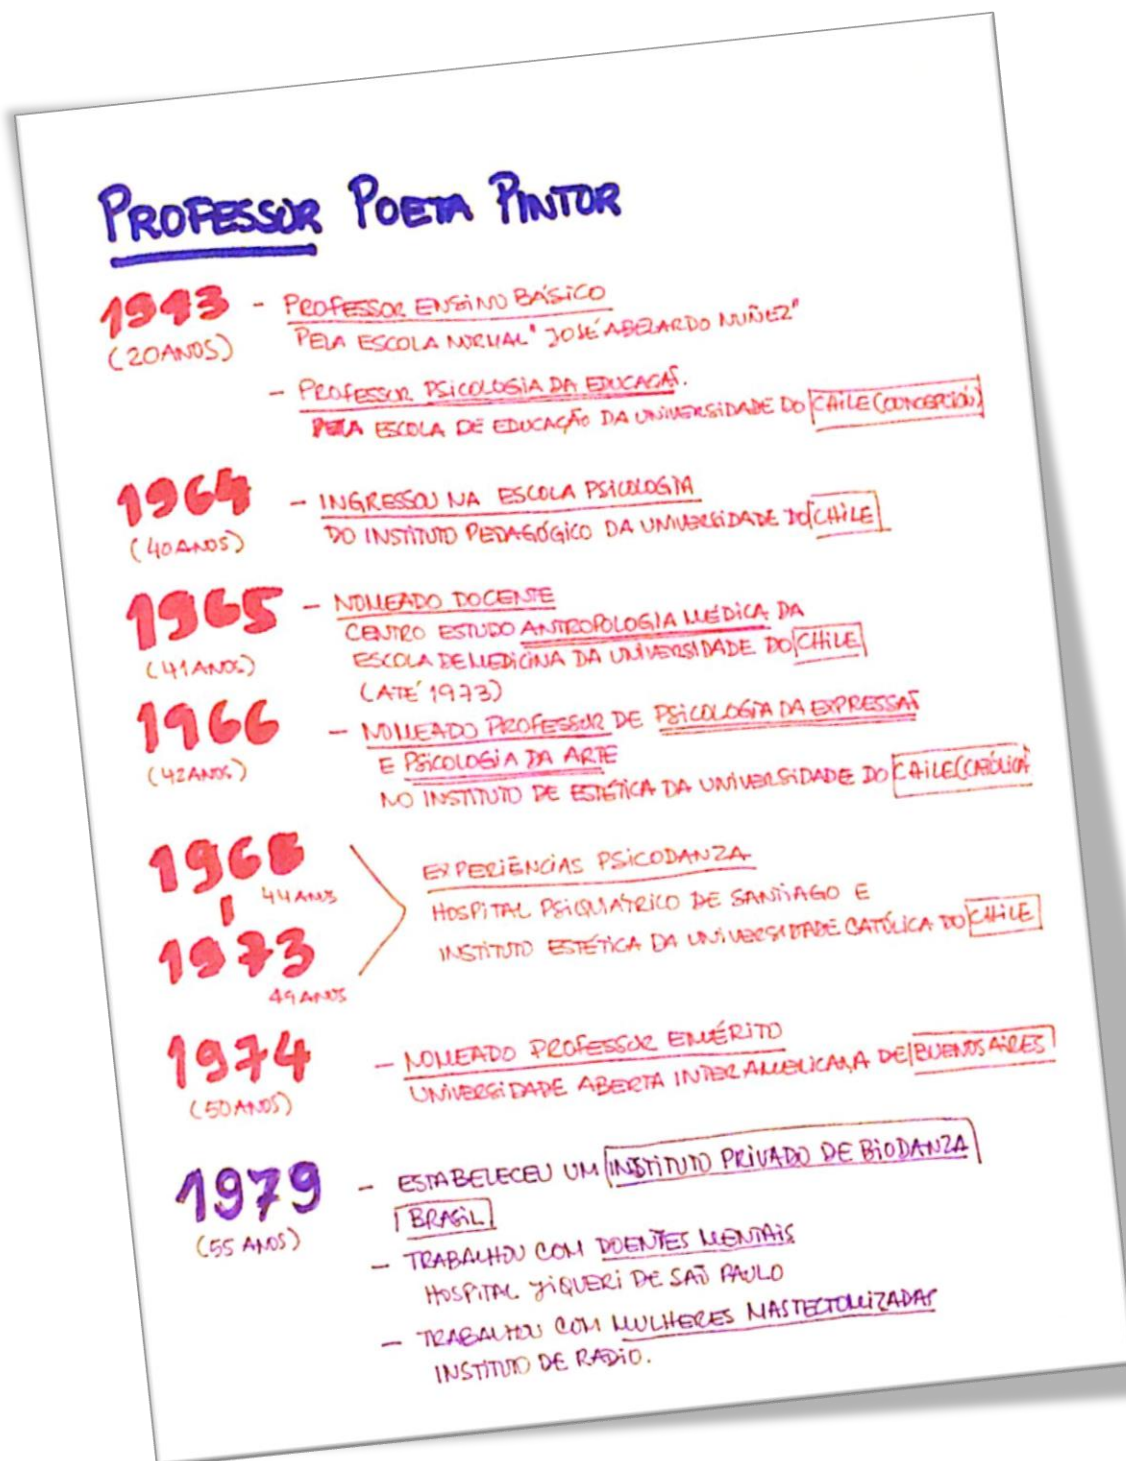 PROFESSOR POETA PINTOR
1943 - PROFESSOR ENSINO BÁSICO
(20 ANOS) PELA ESCOLA NORMAL "JOSÉ ABELARDO NUÑEZ"
- PROFESSOR PSICOLOGIA DA EDUCAÇÃO.
PELA ESCOLA DE EDUCAÇÃO DA UNIVERSIDADE DO CHILE (CONCEPCIÓN)
1964 - INGRESSOU NA ESCOLA PSICOLOGIA
(40 ANOS) DO INSTITUTO PEDAGÓGICO DA UNIVERSIDADE DO CHILE
1965 - NOMEADO DOCENTE
CENTRO ESTUDO ANTROPOLOGIA MÉDICA DA
(41 ANOS) ESCOLA DE MEDICINA DA UNIVERSIDADE DO CHILE
(ATÉ 1973)
1966 - NOMEADO PROFESSOR DE PSICOLOGIA DA EXPRESSÃO
(42 ANOS) E PSICOLOGIA DA ARTE
NO INSTITUTO DE ESTÉTICA DA UNIVERSIDADE DO CHILE (CATÓLICA)
1968 EXPERIÊNCIAS PSICODANZA
44 ANOS HOSPITAL PSIQUIÁTRICO DE SANTIAGO E
1973 INSTITUTO ESTÉTICA DA UNIVERSIDADE CATÓLICA DO CHILE
49 ANOS
1974 - NOMEADO PROFESSOR EMÉRITO
(50 ANOS) UNIVERSIDADE ABERTA INTERAMERICANA DE BUENOS AIRES
1979 - ESTABELECEU UM INSTITUTO PRIVADO DE BIODANZA
(55 ANOS) BRASIL
- TRABALHOU COM DOENTES MENTAIS
HOSPITAL JIQUERI DE SÃO PAULO
- TRABALHOU COM MULHERES MASTECTOMIZADAS
INSTITUTO DE RADIO.